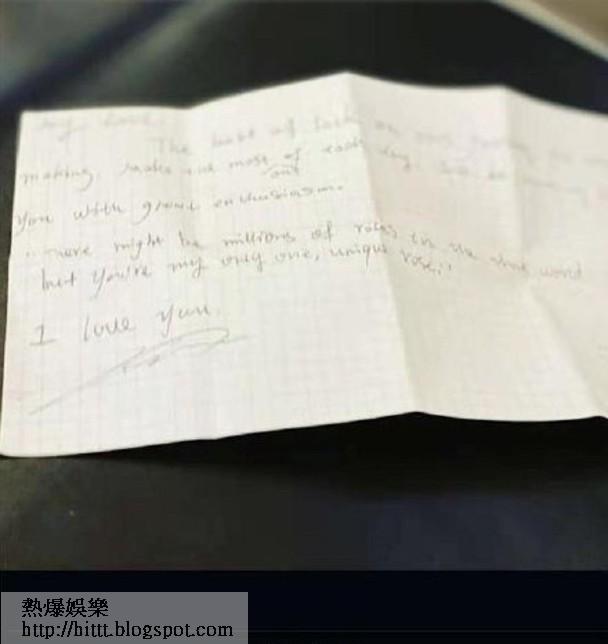 my love
The best of luck on
making, make the most of each day
out
you with great enthusiasm.
"There might be millions of roses in the whole world
but you're my only one, unique rose."
I love you.
熱爆娛樂
http://hittt.blogspot.com